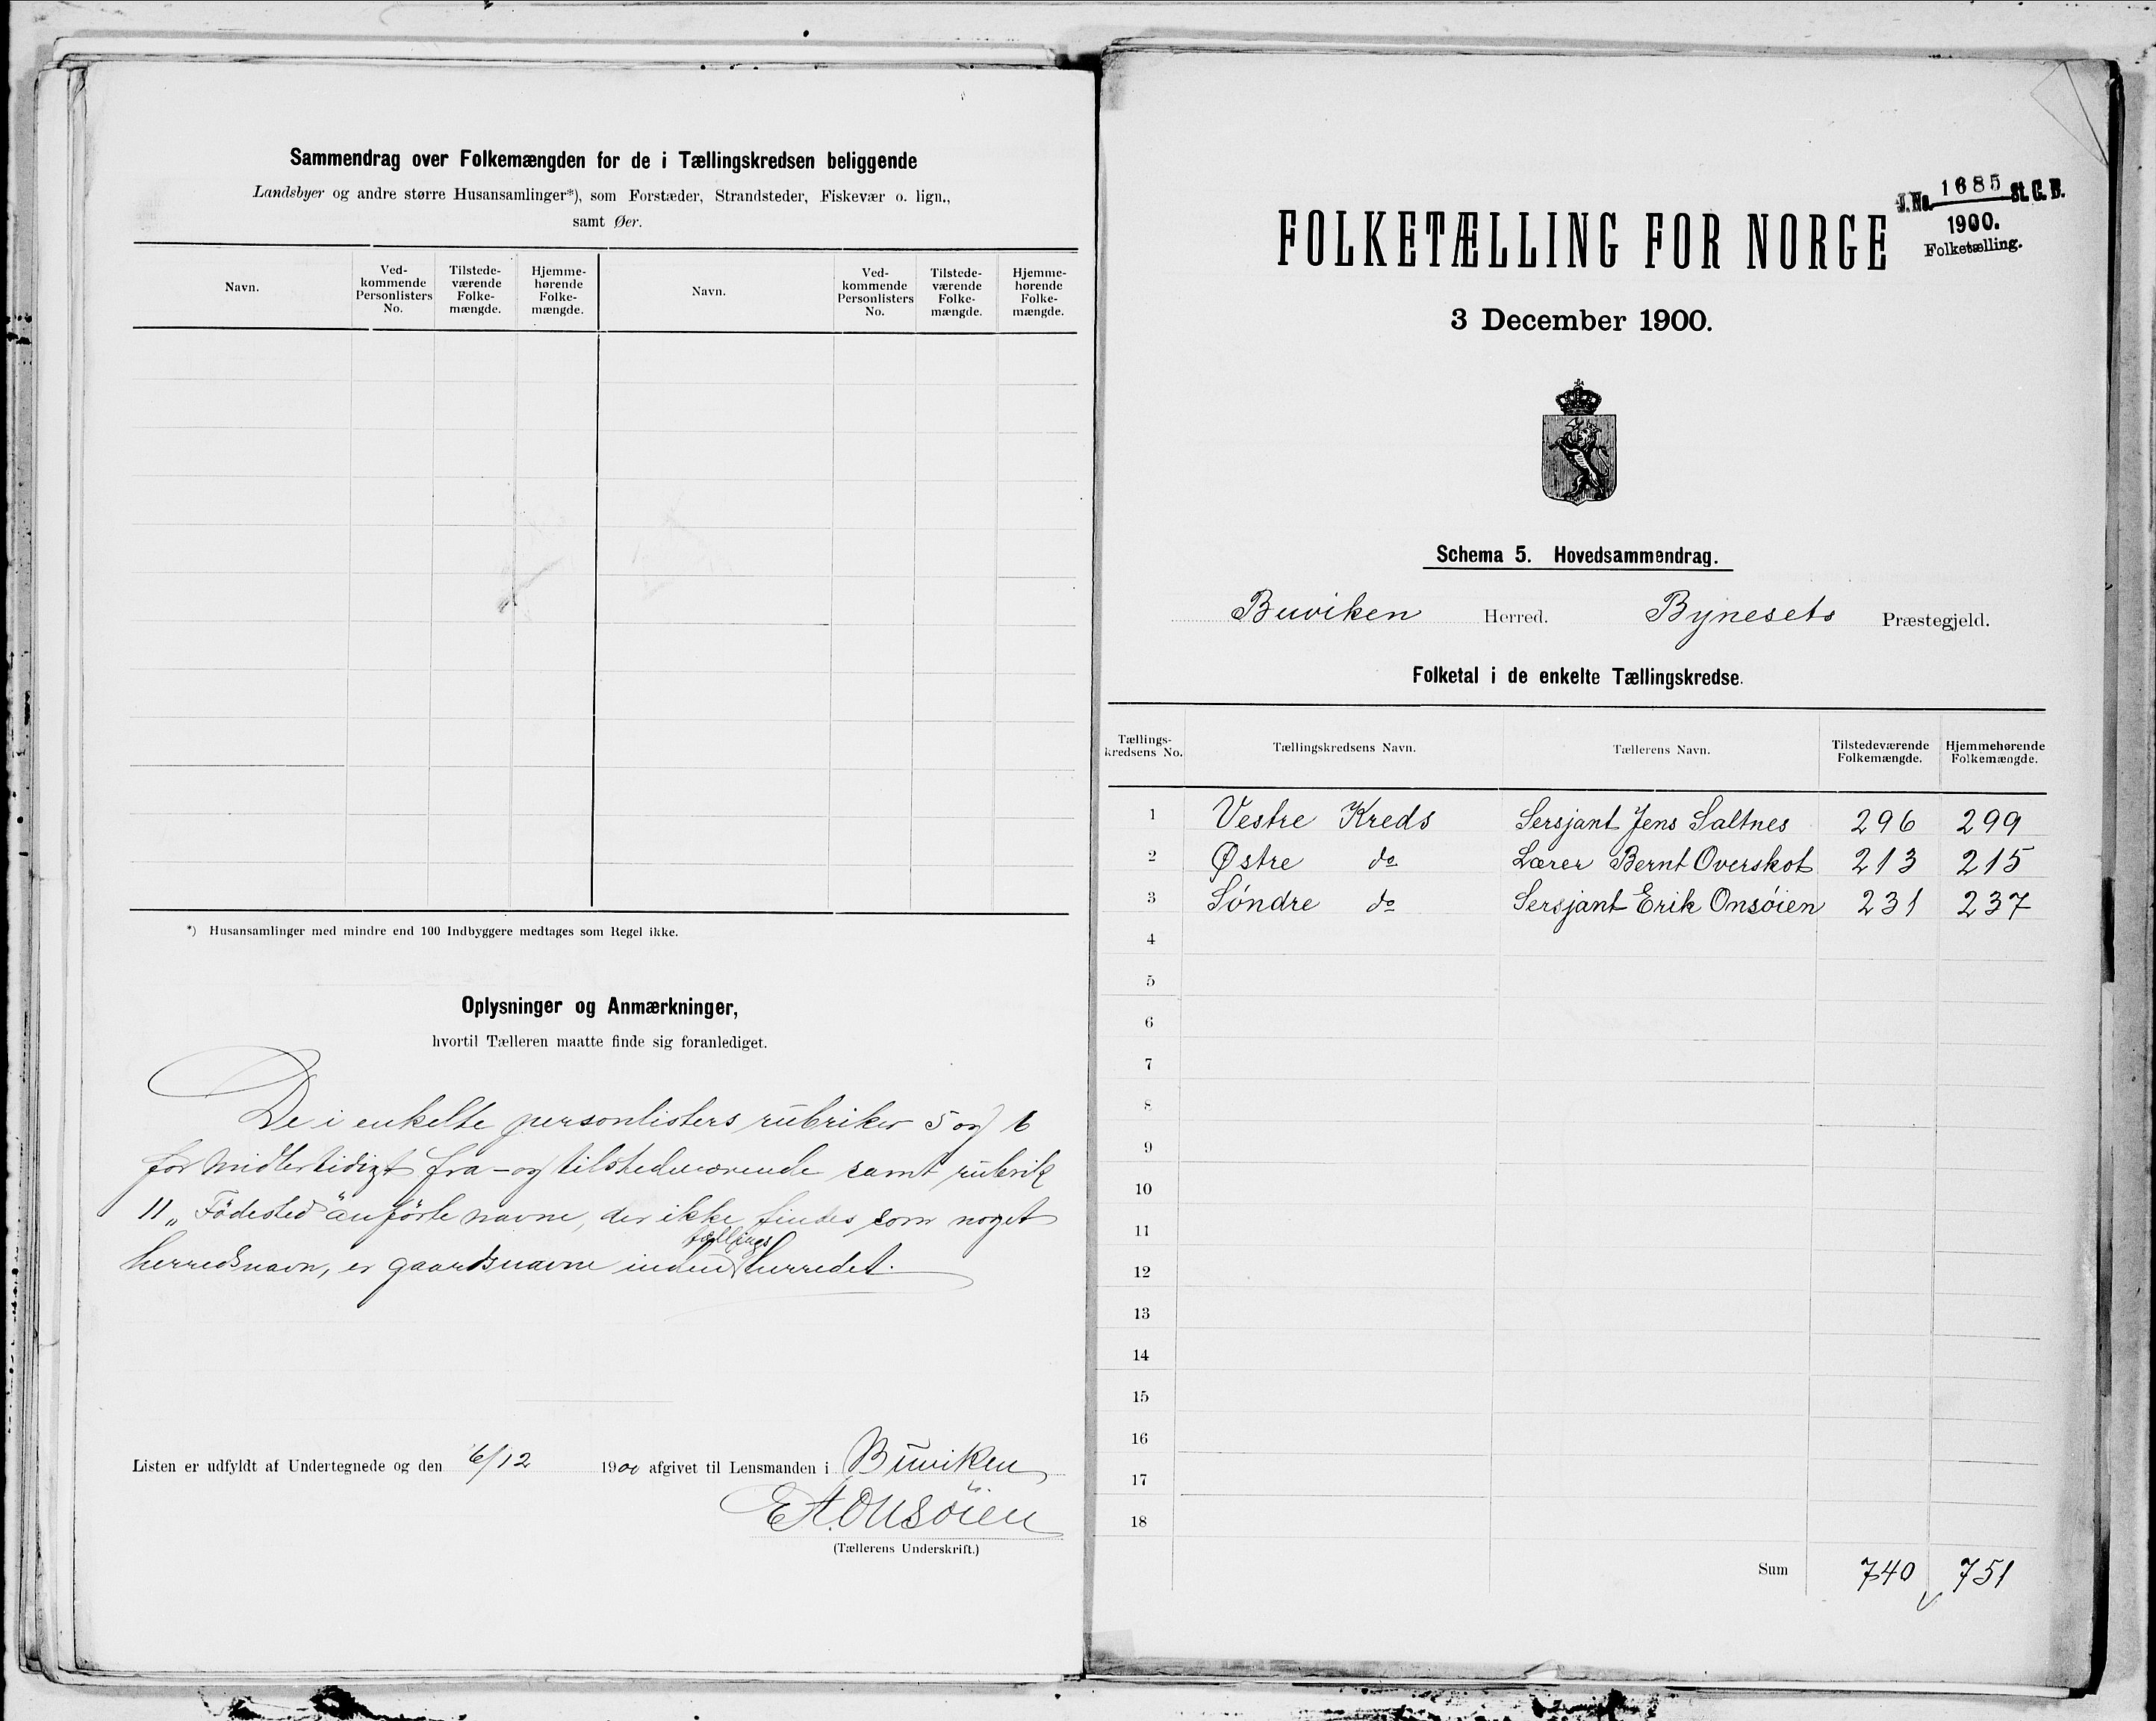 Sammendrag over Folkemængden for de i Tællingskredsen beliggende
Landsbyer og andre større Husansamlinger*), som Forstæder, Strandsteder, Fiskevær o. lign.,
samt Øer.
Navn. Ved-kommende Personlisters No. Tilstede-værende Folke-mængde. Hjemme-hørende Folke-mængde. Navn. Ved-kommende Personlisters No. Tilstede-værende Folke-mængde. Hjemme-hørende Folke-mængde.
*) Husansamlinger med mindre end 100 Indbyggere medtages som Regel ikke.
Oplysninger og Anmærkninger,
hvortil Tælleren maatte finde sig foranlediget.
De i enkelte personlisters rubriker 5 og 6
for midlertidigt fra- og tilstedeværende samt rubrik
11 „Födested" anförte navne, der ikke findes som noget
tællings
herredsnavn, er gaardsnavne inden herredet.
Listen er udfyldt af Undertegnede og den 6/12 1900 afgivet til Lensmanden i Buviken
E A. Onsöien
(Tællerens Underskrift.)
J. No. 1685 St. C. B.
1900.
Folketælling.
FOLKETÆLLING FOR NORGE
3 December 1900.
Schema 5. Hovedsammendrag.
Buviken Herred. Bynesets Præstegjeld.
Folketal i de enkelte Tællingskredse.
Tællings-kredsens No. Tællingskredsens Navn. Tællerens Navn. Tilstedeværende Folkemængde. Hjemmehørende Folkemængde.
1 Vestre Kreds Sersjant Jens Saltnes 296 299
2 Østre do Lærer Bernt Overskot 213 215
3 Søndre do Sersjant Erik Onsøien 231 237
4
5
6
7
8
9
10
11
12
13
14
15
16
17
18
Sum 740 751